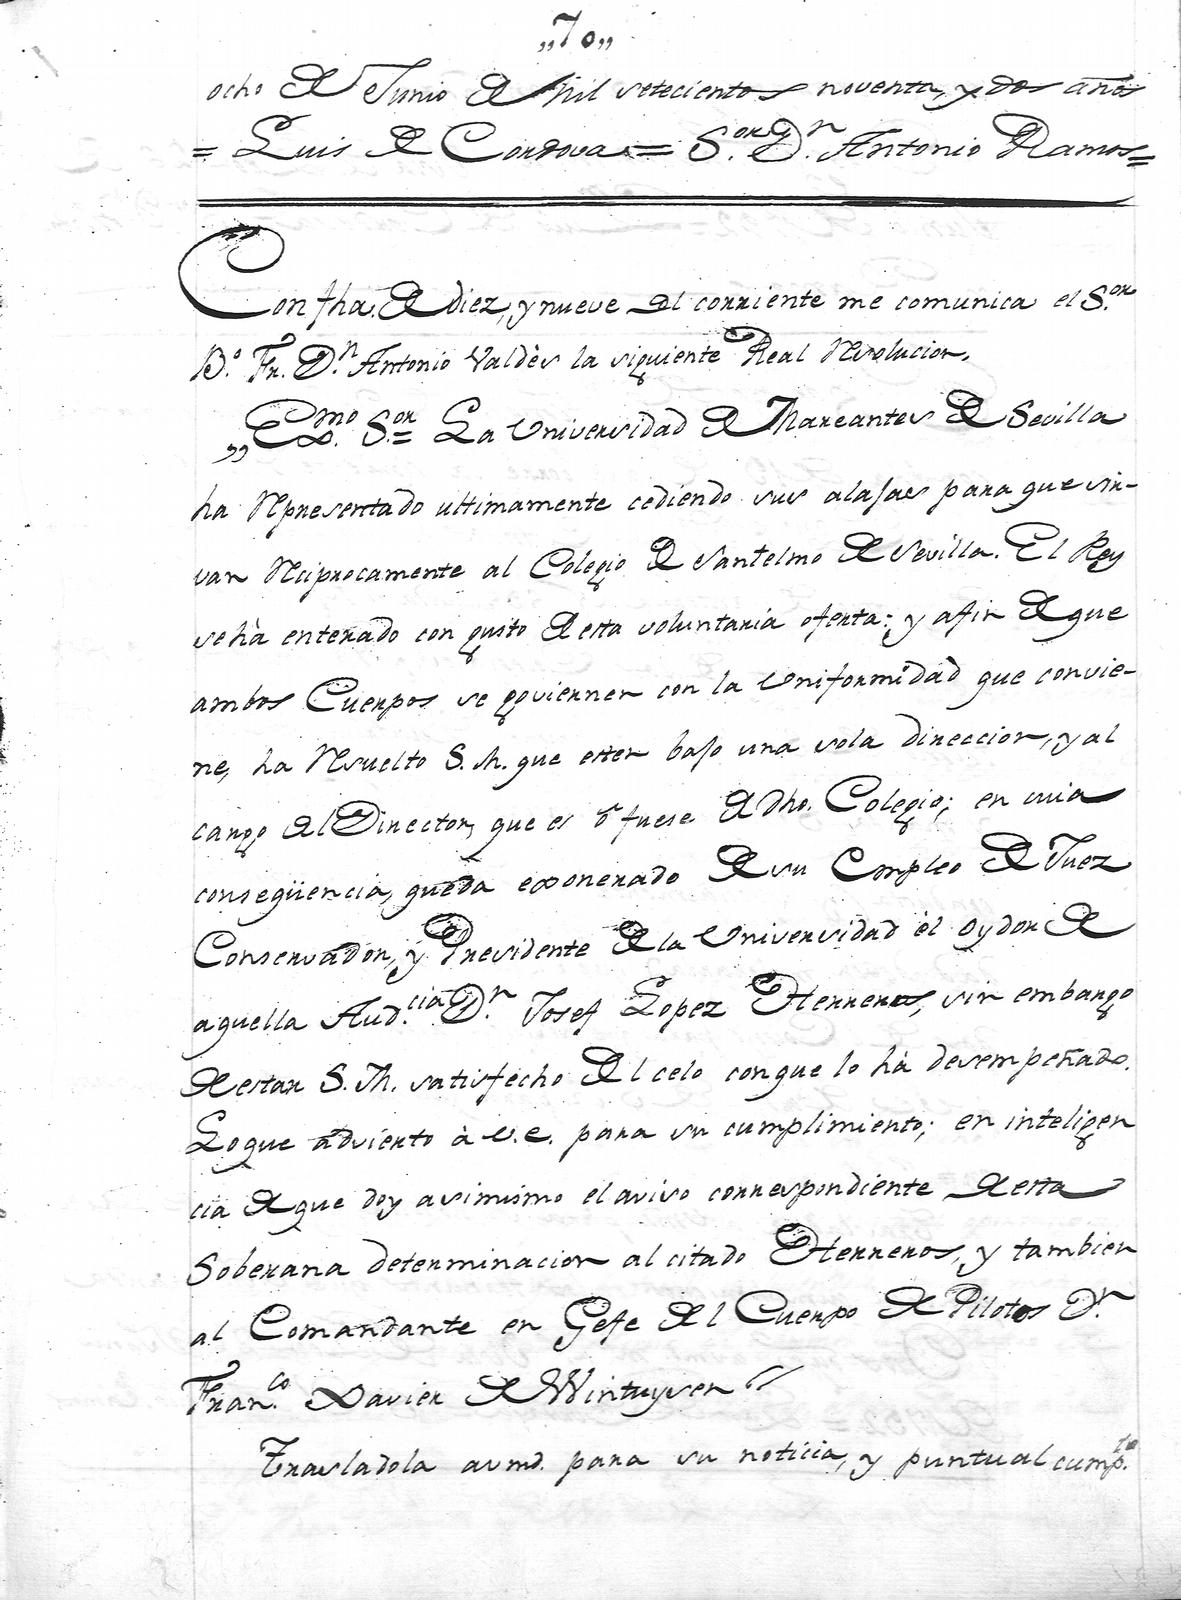 „70„
ocho de Junio de Mil setecientos noventa, y dos años
= Luis de Cordova = S.or D.n Antonio Ramos =
Con fha. de diez, y nueve del corriente me comunica el S.or
B.o Fr. D.n Antonio Valdès la siguiente Real Resolucion.
„Exmo. S.or = La Universidad de Mareantes de Sevilla
ha Representado ultimamente cediendo sus alajas para que sir-
van Reciprocamente al Colegio de Santelmo de Sevilla. El Rey
se hà enterado con gusto de esta voluntaria oferta: y afin de que
ambos Cuerpos se goviernen con la Uniformidad que convie-
ne, ha Resuelto S. M. que esten bajo una sola direccion, y al
cargo del Director, que es ô fuese de dho. Colegio; en cuia
conseqüencia, queda exonerado de su Empleo de Juez
Conservador, y Presidente de la Universidad èl Oydor de
aquella Aud.cia D.n Josef Lopez Herreros, sin embargo
de estar S. M. satisfecho del celo conque lo hà desempeñado.
Loque advierto à V.E. para su cumplimiento; en inteligen
cia de que doy asimismo el aviso correspondiente de esta
Soberana determinacion al citado Herreros, y tambien
al Comandante en Gefe del Cuerpo de Pilotos D.n
Fran.co Xavier de Wintuysen //
Trasladola avmd. para su noticia, y puntual cump.to